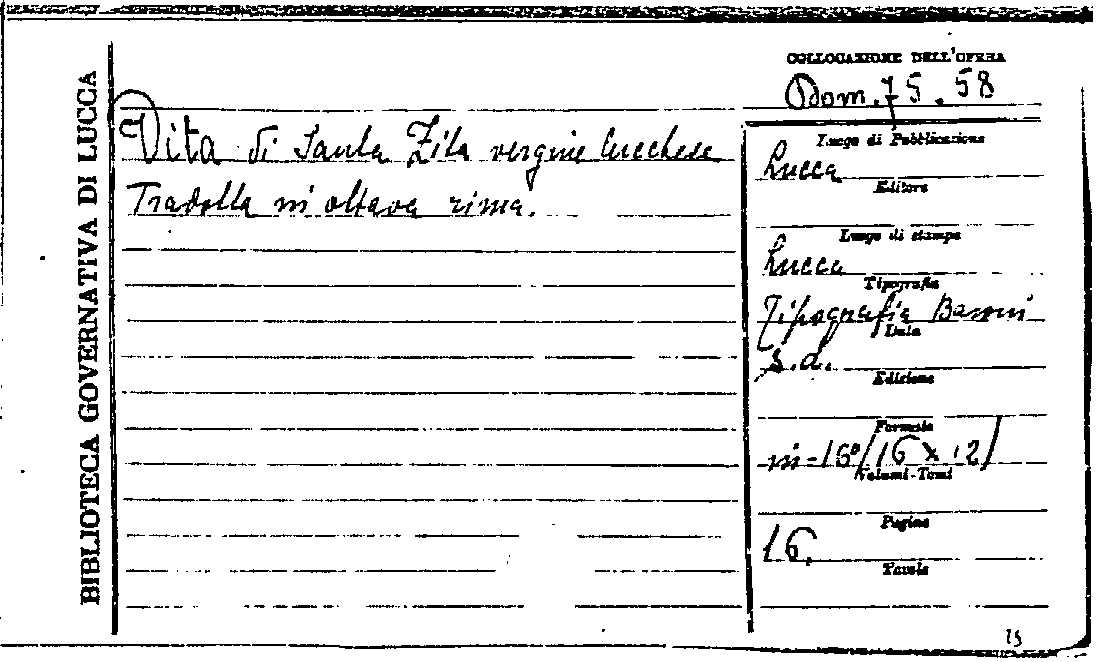 BIBLIOTECA GOVERNATIVA DI LUCCA
COLLOCAZIONE DELL'OPERA
Dom. 75.58
Vita di Santa Zita vergine lucchese
Tradotta in ottava rima.
Luogo di Pubblicazione
Lucca
Editore
Luogo di stampa
Lucca
Tipografia
Tipografia Baroni
Data
s.d.
Edizione
Formato
in-16°/16 x 12/
Volumi-Tomi
Pagine
16.
Tavole
15